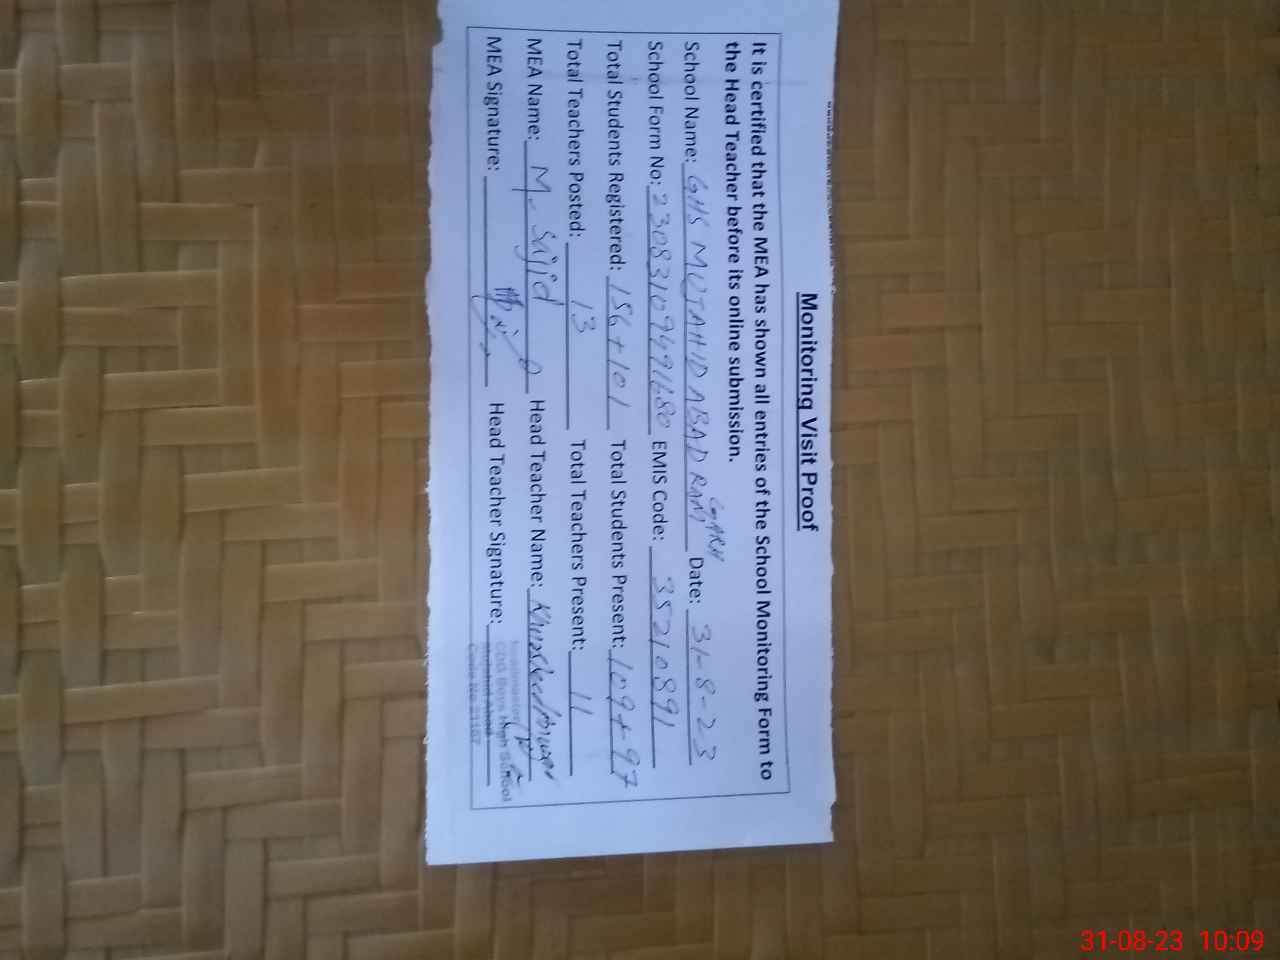 Monitoring Visit Proof
It is certified that the MEA has shown all entries of the School Monitoring Form to
the Head Teacher before its online submission.
School Name: GHS MUJAHID ABAD RAM GARH Date: 31-8-23
School Form No: EMIS Code: 35210891
Total Students Registered: 156+101 Total Students Present: 109+97
Total Teachers Posted: 13 Total Teachers Present: 11
MEA Name: M. Sajid Head Teacher Name:
MEA Signature: Head Teacher Signature:
CDG Boys High School
31-08-23 10:09